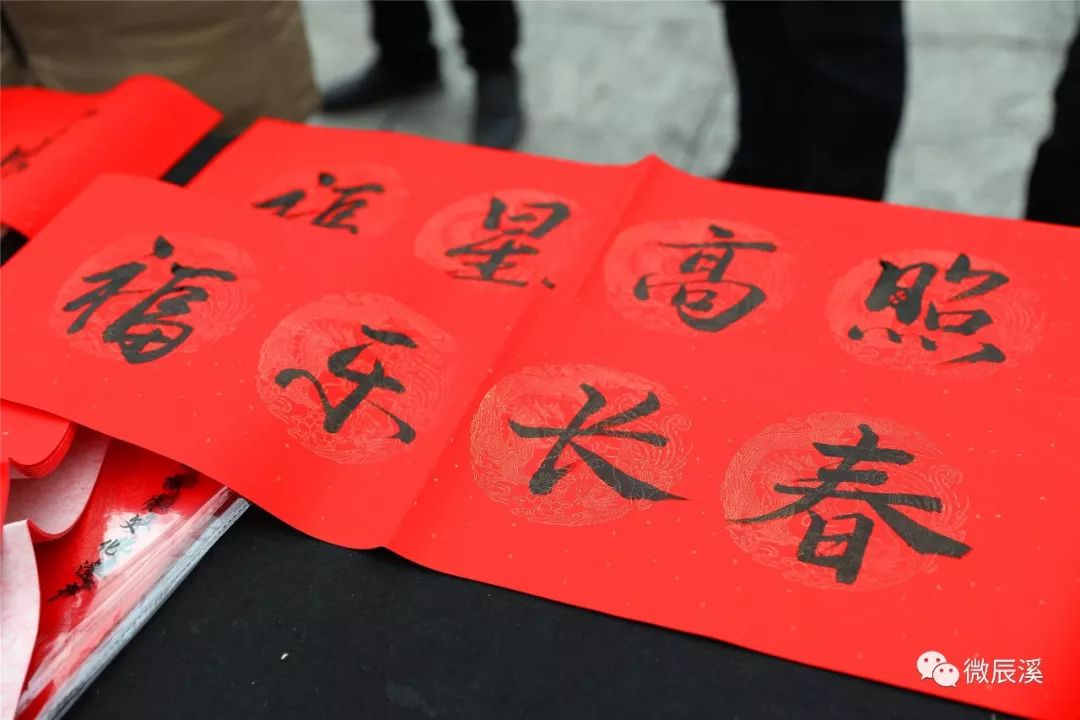 星高照
福乐长春
福文化
微辰溪